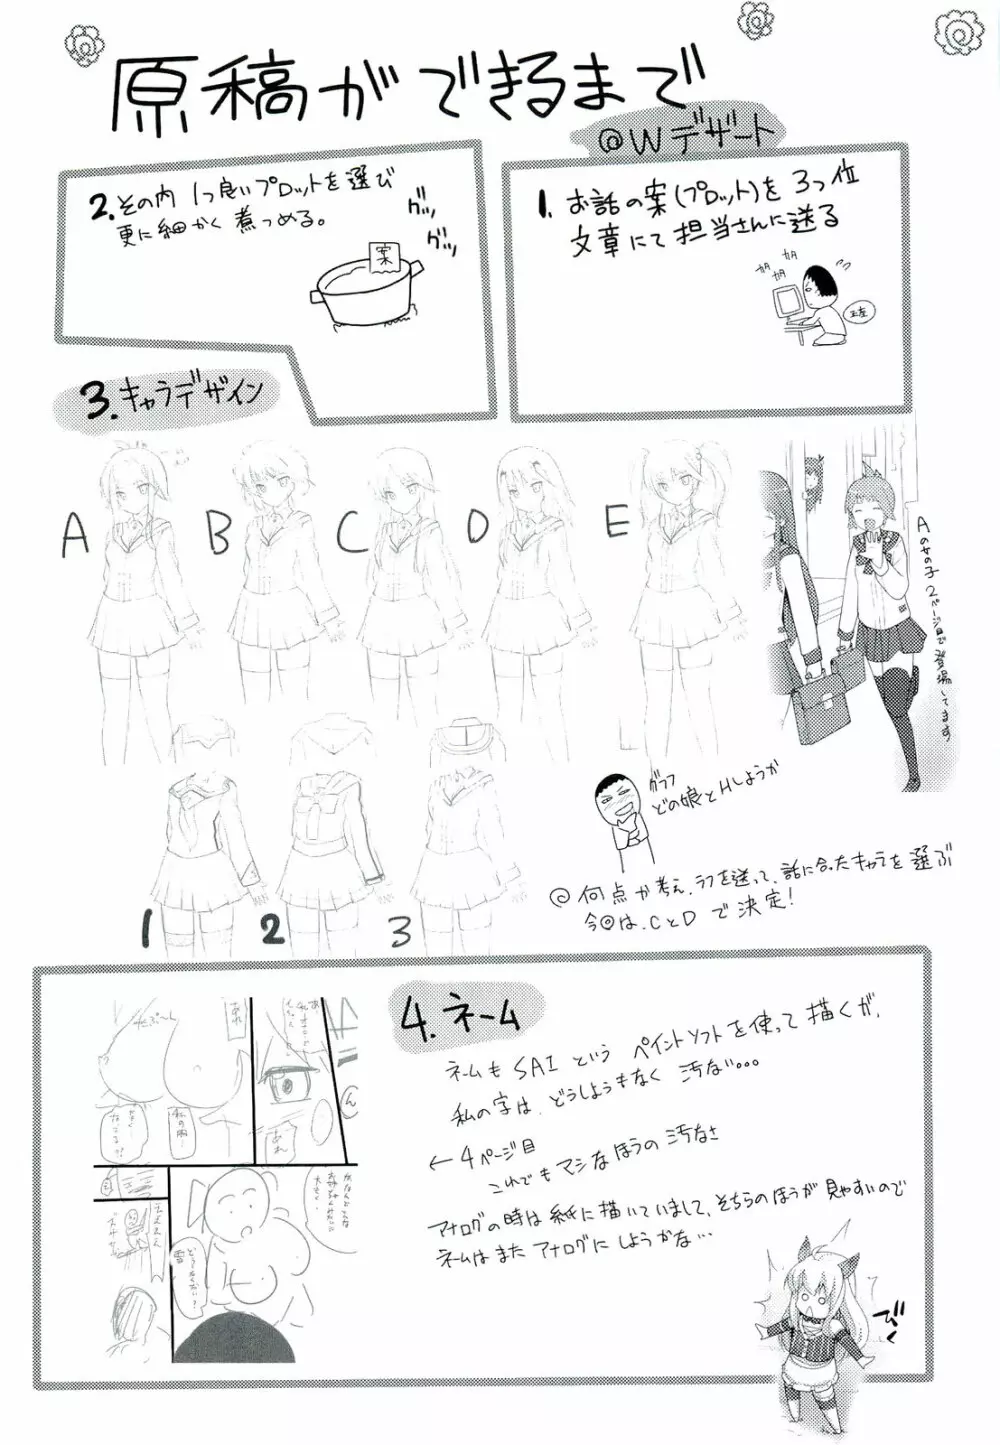 原稿ができるまで
@Wデザート
1. お話の案(プロット)を 3つ位
文章にて担当さんに送る
カタ
カタ
カタ
2. その内 1つ良いプロットを選び
更に細かく煮つめる。
案
グッ
グッ
3. キャラデザイン
A
B
C
D
E
Aの女の子2ページ目で登場してます
グフフ
どの娘とHしようか
◎何点か考え、ラフを送って、話に合ったキャラを選ぶ
今回は、CとDで決定!
1
2
3
4. ネーム
ネームもSAIという ペイントソフトを使って描くが、
私の字は、どうしようもなく 汚ない…。
← 4ページ目
これでもマシなほうの汚なさ
アナログの時は紙に描いていまして、そちらのほうが見やすいので
ネームはまたアナログにしようかな…
たぷ〜ん
あれ
あれ
びく